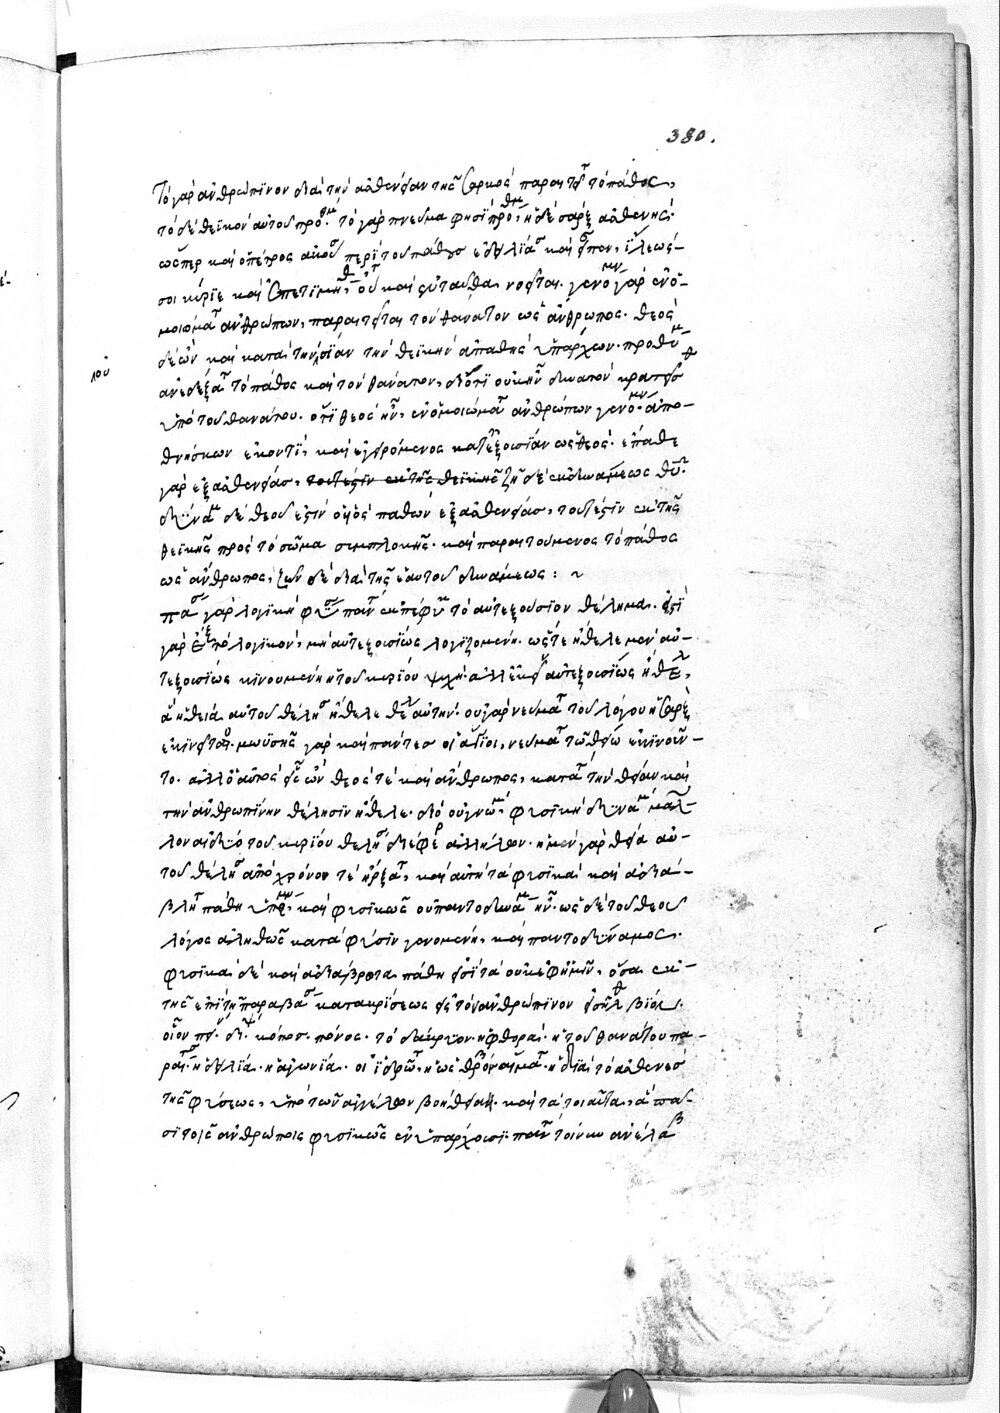 380.
Τὸ γὰρ ἀνθρώπινον διὰ τὴν ἀσθένειαν τῆς σαρκὸς παραιτεῖται τὸ πάθος,
τὸ δὲ θεϊκὸν αὐτοῦ πρόθυμον. τὸ γὰρ πνεῦμα φησὶ πρόθυμον, ἡ δὲ σὰρξ ἀσθενής.
ὥσπερ καὶ ὁ πέτρος ἀκούσας περὶ τοῦ πάθους ἐδειλίασε καὶ εἶπεν, ἵλεώς
σοι κύριε καὶ ἐπετιμήθη, οὕτως καὶ ἐνταῦθα νοεῖται. γενόμενος γὰρ ἐν ὁ-
μοιώματι ἀνθρώπων, παραιτεῖται τὸν θάνατον ὡς ἄνθρωπος. θεὸς
δὲ ὢν καὶ κατὰ τὴν οὐσίαν τὴν θεϊκὴν ἀπαθὴς ὑπάρχων. προθύμως
λου
ἀνεδέξατο τὸ πάθος καὶ τὸν θάνατον, διότι οὐκ ἦν δυνατὸν κρατεῖσθαι
ὑπὸ τοῦ θανάτου. ὅτι θεὸς ἦν, ἐν ὁμοιώματι ἀνθρώπων γενόμενος. ἀπο-
θνήσκων ἑκοντί, καὶ ἐγειρόμενος κατ' ἐξουσίαν ὡς θεός. ἔπαθε
γὰρ ἐξ ἀσθενείας, τουτέστιν ἐκ τῆς θεϊκῆς ζῆ δὲ ἐκ δυνάμεως θεοῦ.
δύναμις δὲ θεοῦ ἐστὶν ὁ υἱὸς παθὼν ἐξ ἀσθενείας, τουτέστιν ἐκ τῆς
θεϊκῆς πρὸς τὸ σῶμα συμπλοκῆς. καὶ παραιτούμενος τὸ πάθος
ὡς ἄνθρωπος, ζῶν δὲ διὰ τῆς ἑαυτοῦ δυνάμεως : ~
πᾶσα γὰρ λογικὴ φύσις πάντως ἐκπέφυκε τὸ αὐτεξούσιον θέλημα.
γὰρ λογικὸν, μὴ αὐτεξουσίως λογιζομένη. ὥστε ἤθελε μὲν αὐ-
τεξουσίως κινουμένη ἡ τοῦ κυρίου ψυχή. ἀλλ' ἐκεῖνα αὐτεξουσίως ἤθελε,
ἃ ἡ θεία αὐτοῦ θέλησις ἤθελε θέλειν αὐτήν. οὐ γὰρ νεύματι τοῦ λόγου ἡ σὰρξ
ἐκινεῖτο. μωϋσῆς γὰρ καὶ πάντες οἱ ἅγιοι, νεύματι τῷ θείῳ ἐκινοῦν-
το. ἀλλ' ὁ αὐτὸς εἷς ὢν θεός τε καὶ ἄνθρωπος, κατά τε τὴν θείαν καὶ
τὴν ἀνθρωπίνην θέλησιν ἤθελε. διὸ οὐ γνώμῃ, φυσικῇ δὲ δυνάμει μᾶλ-
λον αἱ δύο τοῦ κυρίου θελήσεις διέφερον ἀλλήλων. ἡ μὲν γὰρ θεία αὐ-
τοῦ θέλησις
βλητα πάθη καὶ φυσικῶς οὐ παντοδύναμος ἦν. ὡς δὲ τοῦ θεοῦ
λόγος ἀληθῶς κατὰ φύσιν γενομένη, καὶ παντοδύναμος.
φυσικὰ δὲ καὶ ἀδιάβλητα πάθη εἰσὶ τὰ οὐκ ἐφ' ἡμῖν, ὅσα ἐκ
τῆς ἐπὶ τῇ παραβάσει κατακρίσεως εἰς τὸν ἀνθρώπινον εἰσῆλθε βίον.
οἷον πεῖνα, δίψα. κόπος. πόνος. τὸ δάκρυον. ἡ φθορά. ἡ τοῦ θανάτου πα-
ραίτησις. ἡ δειλία. ἡ ἀγωνία. οἱ ἱδρῶτες, ἡ ὡς θρόμβοι αἵματος. ἡ διὰ τὸ ἀσθενὲς
τῆς φύσεως, ὑπὸ τῶν ἀγγέλων βοήθεια. καὶ τὰ τοιαῦτα, ἃ πᾶ-
σι τοῖς ἀνθρώποις φυσικῶς ἐνυπάρχουσι πάντα τοίνυν ἀνέλαβεν